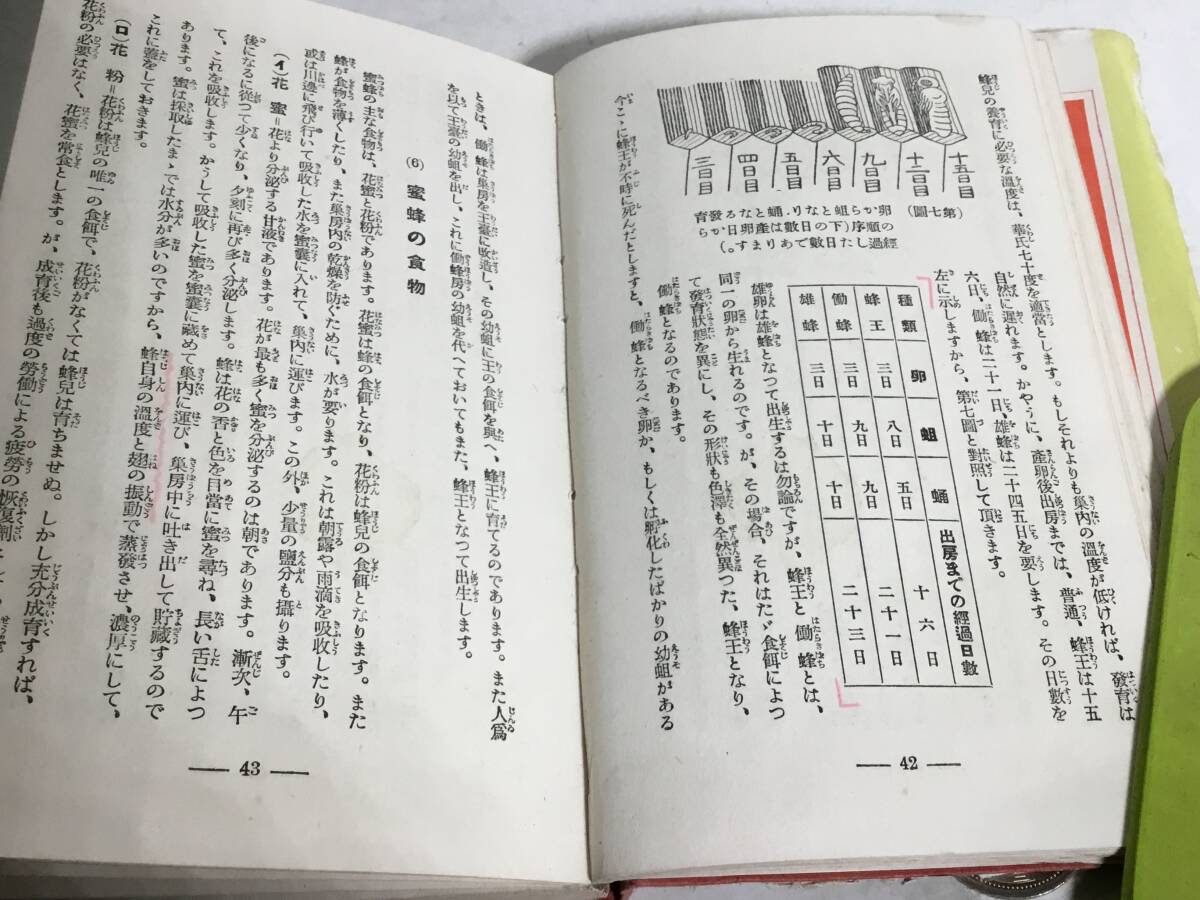 蜂兒の養育に必要な溫度は、華氏七十度を適當とします。もしそれよりも巢内の溫度が低ければ、發育は
自然に遲れます。かやうに、產卵後出房までは、普通、蜂王は十五
六日、働蜂は二十一日、雄蜂は二十四五日を要します。その日數を
左に示しますから、第七圖と對照して頂きます。
十五日目
十二日目
九日目
六日目
五日目
四日目
三日目
(第七圖)
卵から蛆となり、蛹となる發育
の順序(下の日數は產卵日から
經過した日數であります。)
種類 卵 蛆 蛹 出房までの經過日數
蜂王 三日 八日 五日 十六日
働蜂 三日 九日 九日 二十一日
雄蜂 三日 十日 十日 二十三日
雄卵は雄蜂となつて出生するは勿論ですが、蜂王と働蜂とは、
同一の卵から生れるのです。が、その場合、それはたゞ食餌によつ
て發育狀態を異にし、その形狀も色澤も全然異つた、蜂王となり、
働蜂となるのであります。
今こゝに蜂王が不時に死んだとしますと、働蜂となるべき卵か、もしくは孵化したばかりの幼蛆がある
― 42 ―
ときは、働蜂は巢房を王臺に改造し、その幼蛆に王の食餌を與へ、蜂王に育てるのであります。また人爲
を以て王臺の幼蛆を出し、これに働蜂房の幼蛆を代へておいてもまた、蜂王となつて出生します。
(6) 蜜蜂の食物
蜜蜂の主な食物は、花蜜と花粉であります。花蜜は蜂の食餌となり、花粉は蜂兒の食餌となります。また
蜂が食物を薄くしたり、また巢房内の乾燥を防ぐために、水が要ります。これは朝露や雨滴を吸收したり、
或は川邊に飛び行いて吸收した水を蜜囊に入れて、巢内に運びます。この外、少量の鹽分も攝ります。
(イ)花蜜=花より分泌する甘液であります。花が最も多く蜜を分泌するのは朝であります。漸次、午
後になるに從つて少くなり、夕刻に再び多く分泌します。蜂は花の香と色を目當に蜜を尋ね、長い舌によつ
て、これを吸收します。かうして吸收した蜜を蜜囊に藏めて巢内に運び、巢房中に吐き出して貯藏するので
あります。蜜は採取したまゝでは水分が多いのですから、蜂自身の溫度と翅の振動で蒸發させ、濃厚にして、
これに蓋をしておきます。
(ロ)花粉=花粉は蜂兒の唯一の食餌で、花粉がなくては蜂兒は育ちませぬ。しかし充分成育すれば、
花粉の必要はなく、花蜜を常食とします。が、成育後も過度の勞働による疲勞の恢復劑として、
― 43 ―